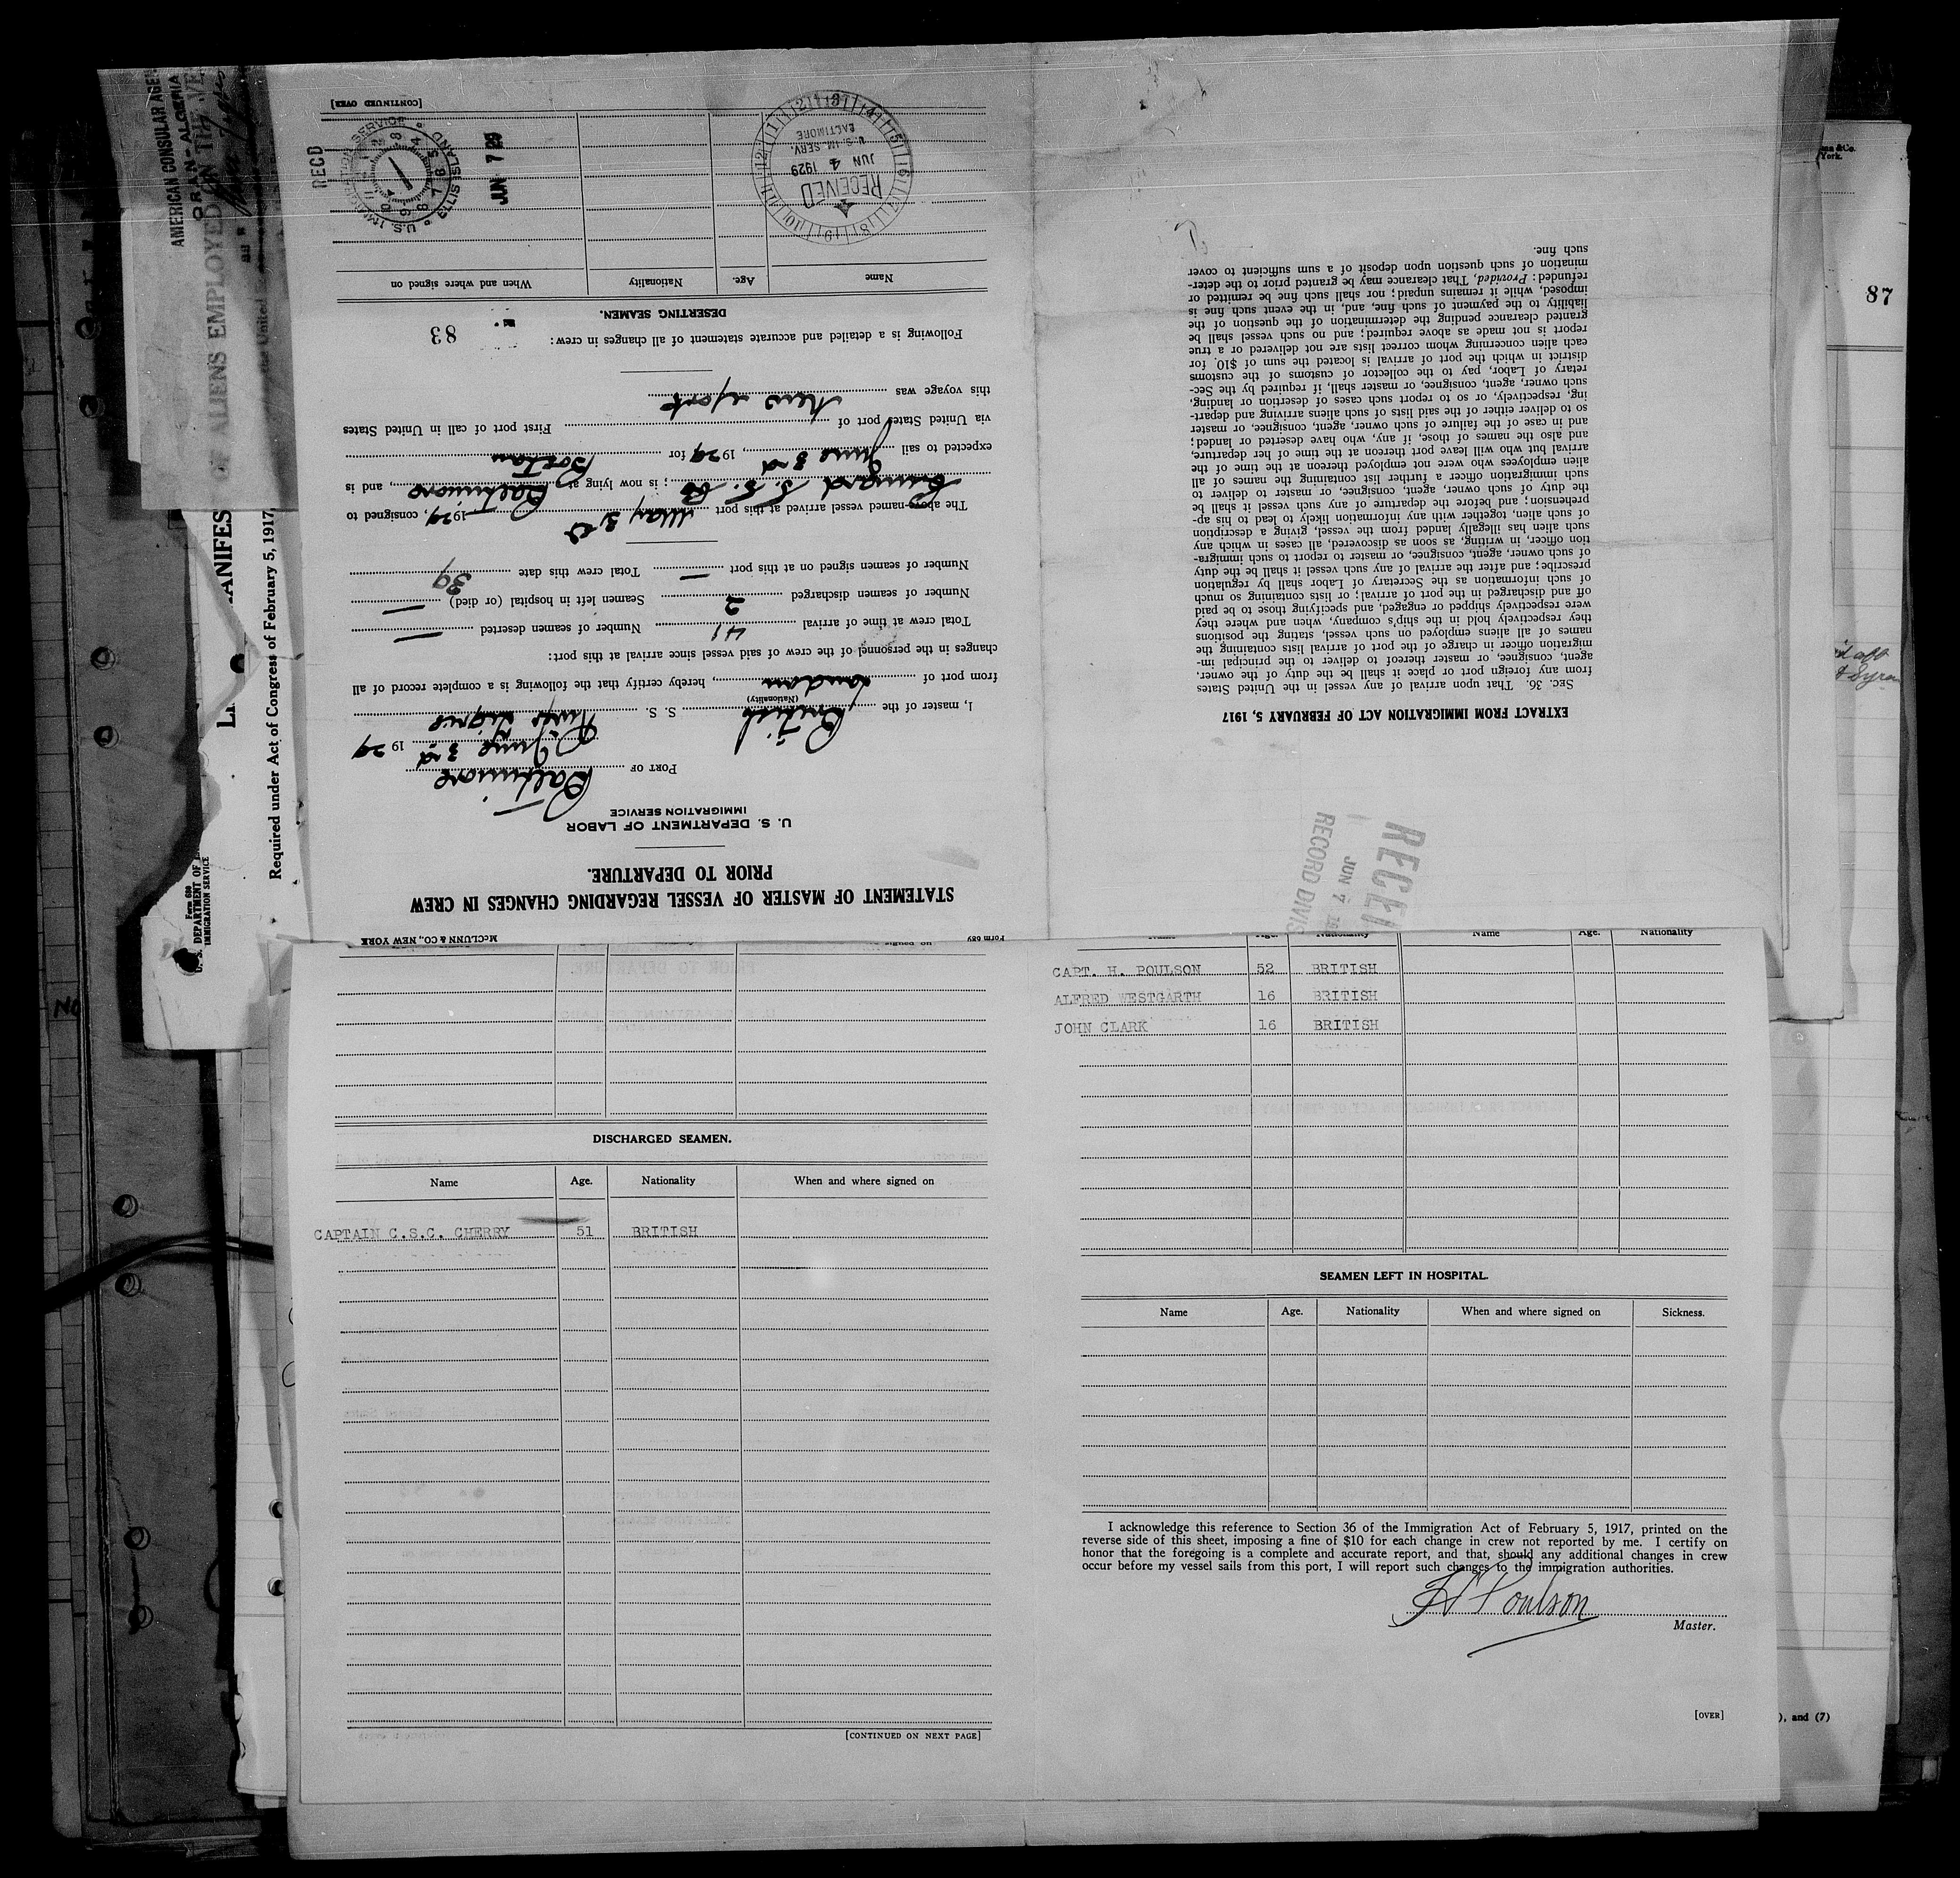 STATEMENT OF MASTER OF VESSEL REGARDING CHANGES IN CREW
PRIOR TO DEPARTURE.
U. S. DEPARTMENT OF LABOR
IMMIGRATION SERVICE
PORT OF Baltimore
June 3rd 1929
I, master of the British S. S. 
(Nationality)
from port of London, hereby certify that the following is a complete record of all
changes in the personnel of the crew of said vessel since arrival at this port:
Total crew at time of arrival 41 Number of seamen deserted —
Number of seamen discharged 2 Seamen left in hospital (or died) —
Number of seamen signed on at this port — Total crew this date 39
The above-named vessel arrived at this port May 31st 1929, consigned to
Cunard S.S. Co; is now lying at Baltimore, and is
expected to sail June 3rd, 1929 for Boston
via United States port of First port of call in United States
this voyage was New York
Following is a detailed and accurate statement of all changes in crew:
83
DESERTING SEAMEN.
Name Age. Nationality When and where signed on
RECEIVED
JUN 4 1929
U. S. IM. SERV.
BALTIMORE
RECD
U.S. IMMIGRATION SERVICE
ELLIS ISLAND
JUN 7 29
[CONTINUED OVER]
EXTRACT FROM IMMIGRATION ACT OF FEBRUARY 5, 1917
SEC. 36. That upon arrival of any vessel in the United States
from any foreign port or place it shall be the duty of the owner,
agent, consignee, or master thereof to deliver to the principal im-
migration officer in charge of the port of arrival lists containing the
names of all aliens employed on such vessel, stating the positions
they respectively hold in the ship's company, when and where they
were respectively shipped or engaged, and specifying those to be paid
off and discharged in the port of arrival; or lists containing so much
of such information as the Secretary of Labor shall by regulation
prescribe; and after the arrival of any such vessel it shall be the duty
of such owner, agent, consignee, or master to report to such immigra-
tion officer, in writing, as soon as discovered, all cases in which any
such alien has illegally landed from the vessel, giving a description
of such alien, together with any information likely to lead to his ap-
prehension; and before the departure of any such vessel it shall be
the duty of such owner, agent, consignee, or master to deliver to
such immigration officer a further list containing the names of all
alien employees who were not employed thereon at the time of the
arrival but who will leave port thereon at the time of her departure,
and also the names of those, if any, who have deserted or landed;
and in case of the failure of such owner, agent, consignee, or master
so to deliver either of the said lists of such aliens arriving and depart-
ing, respectively, or so to report such cases of desertion or landing,
such owner, agent, consignee, or master, shall, if required by the Sec-
retary of Labor, pay to the collector of customs of the customs
district in which the port of arrival is located the sum of $10. for
each alien concerning whom correct lists are not delivered or a true
report is not made as above required; and no such vessel shall be
granted clearance pending the determination of the question of the
liability to the payment of such fine, and, in the event such fine is
imposed, while it remains unpaid; nor shall such fine be remitted or
refunded: Provided, That clearance may be granted prior to the deter-
mination of such question upon deposit of a sum sufficient to cover
such fine.
RECEI
JUN 7
RECORD DIVIS
McCLUNN & CO., NEW YORK
DISCHARGED SEAMEN.
Name Age. Nationality When and where signed on
CAPTAIN C.S.C. CHERRY 51 BRITISH
[CONTINUED ON NEXT PAGE]
Name Age. Nationality Name Age. Nationality
CAPT. H. POULSON 52 BRITISH
ALFRED WESTGARTH 16 BRITISH
JOHN CLARK 16 BRITISH
SEAMEN LEFT IN HOSPITAL.
Name Age. Nationality When and where signed on Sickness.
I acknowledge this reference to Section 36 of the Immigration Act of February 5, 1917, printed on the
reverse side of this sheet, imposing a fine of $10 for each change in crew not reported by me. I certify on
honor that the foregoing is a complete and accurate report, and that, should any additional changes in crew
occur before my vessel sails from this port, I will report such changes to the immigration authorities.
H Poulson
Master.
[OVER]
AMERICAN CONSULAR AGEN
ORAN - ALGERIA
OF ALIENS EMPLOYED ON THE VE
Required under Act of Congress of February 5, 1917
Form 680
U. S. DEPARTMENT OF
IMMIGRATION SERVICE
87
), and (7)